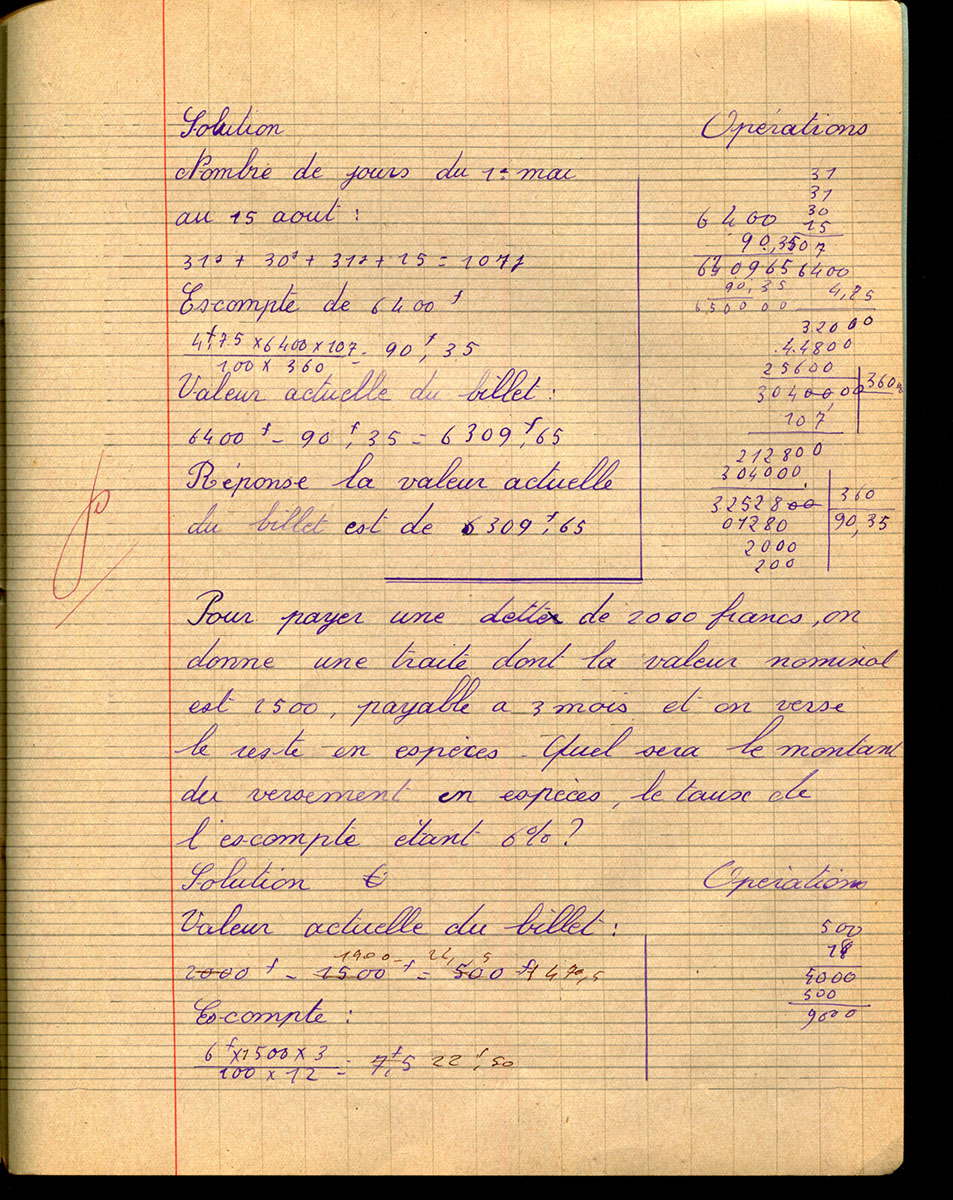 Solution
Opérations
Nombre de jours du 1er mai
au 15 aout :
31j + 30j + 31j + 15 = 107j
Escompte de 6400 f
4f,75 × 6400 × 107 = 90 f, 35
100 × 360
Valeur actuelle du billet :
6400 f - 90 f, 35 = 6309 f, 65
Réponse la valeur actuelle
du billet est de 6309 f, 65
31
31
30
15
107
6400
90,35
6400
4,75
32000
44800
25600
3040000
360
107
212800
304000
32528000
360
01280
90,35
2000
200
Pour payer une dette de 2000 francs, on
donne une traite dont la valeur nominal
est 1500, payable a 3 mois et on verse
le reste en espèces. Quel sera le montant
du versement en espèces, le taux de
l'escompte étant 6%?
Solution
Opération
Valeur actuelle du billet :
2000 f - 1500 f = 500 f
Escompte :
6 f × 1500 × 3 = 7f,5 22 f, 50
100 × 12
500
18
4000
500
9000